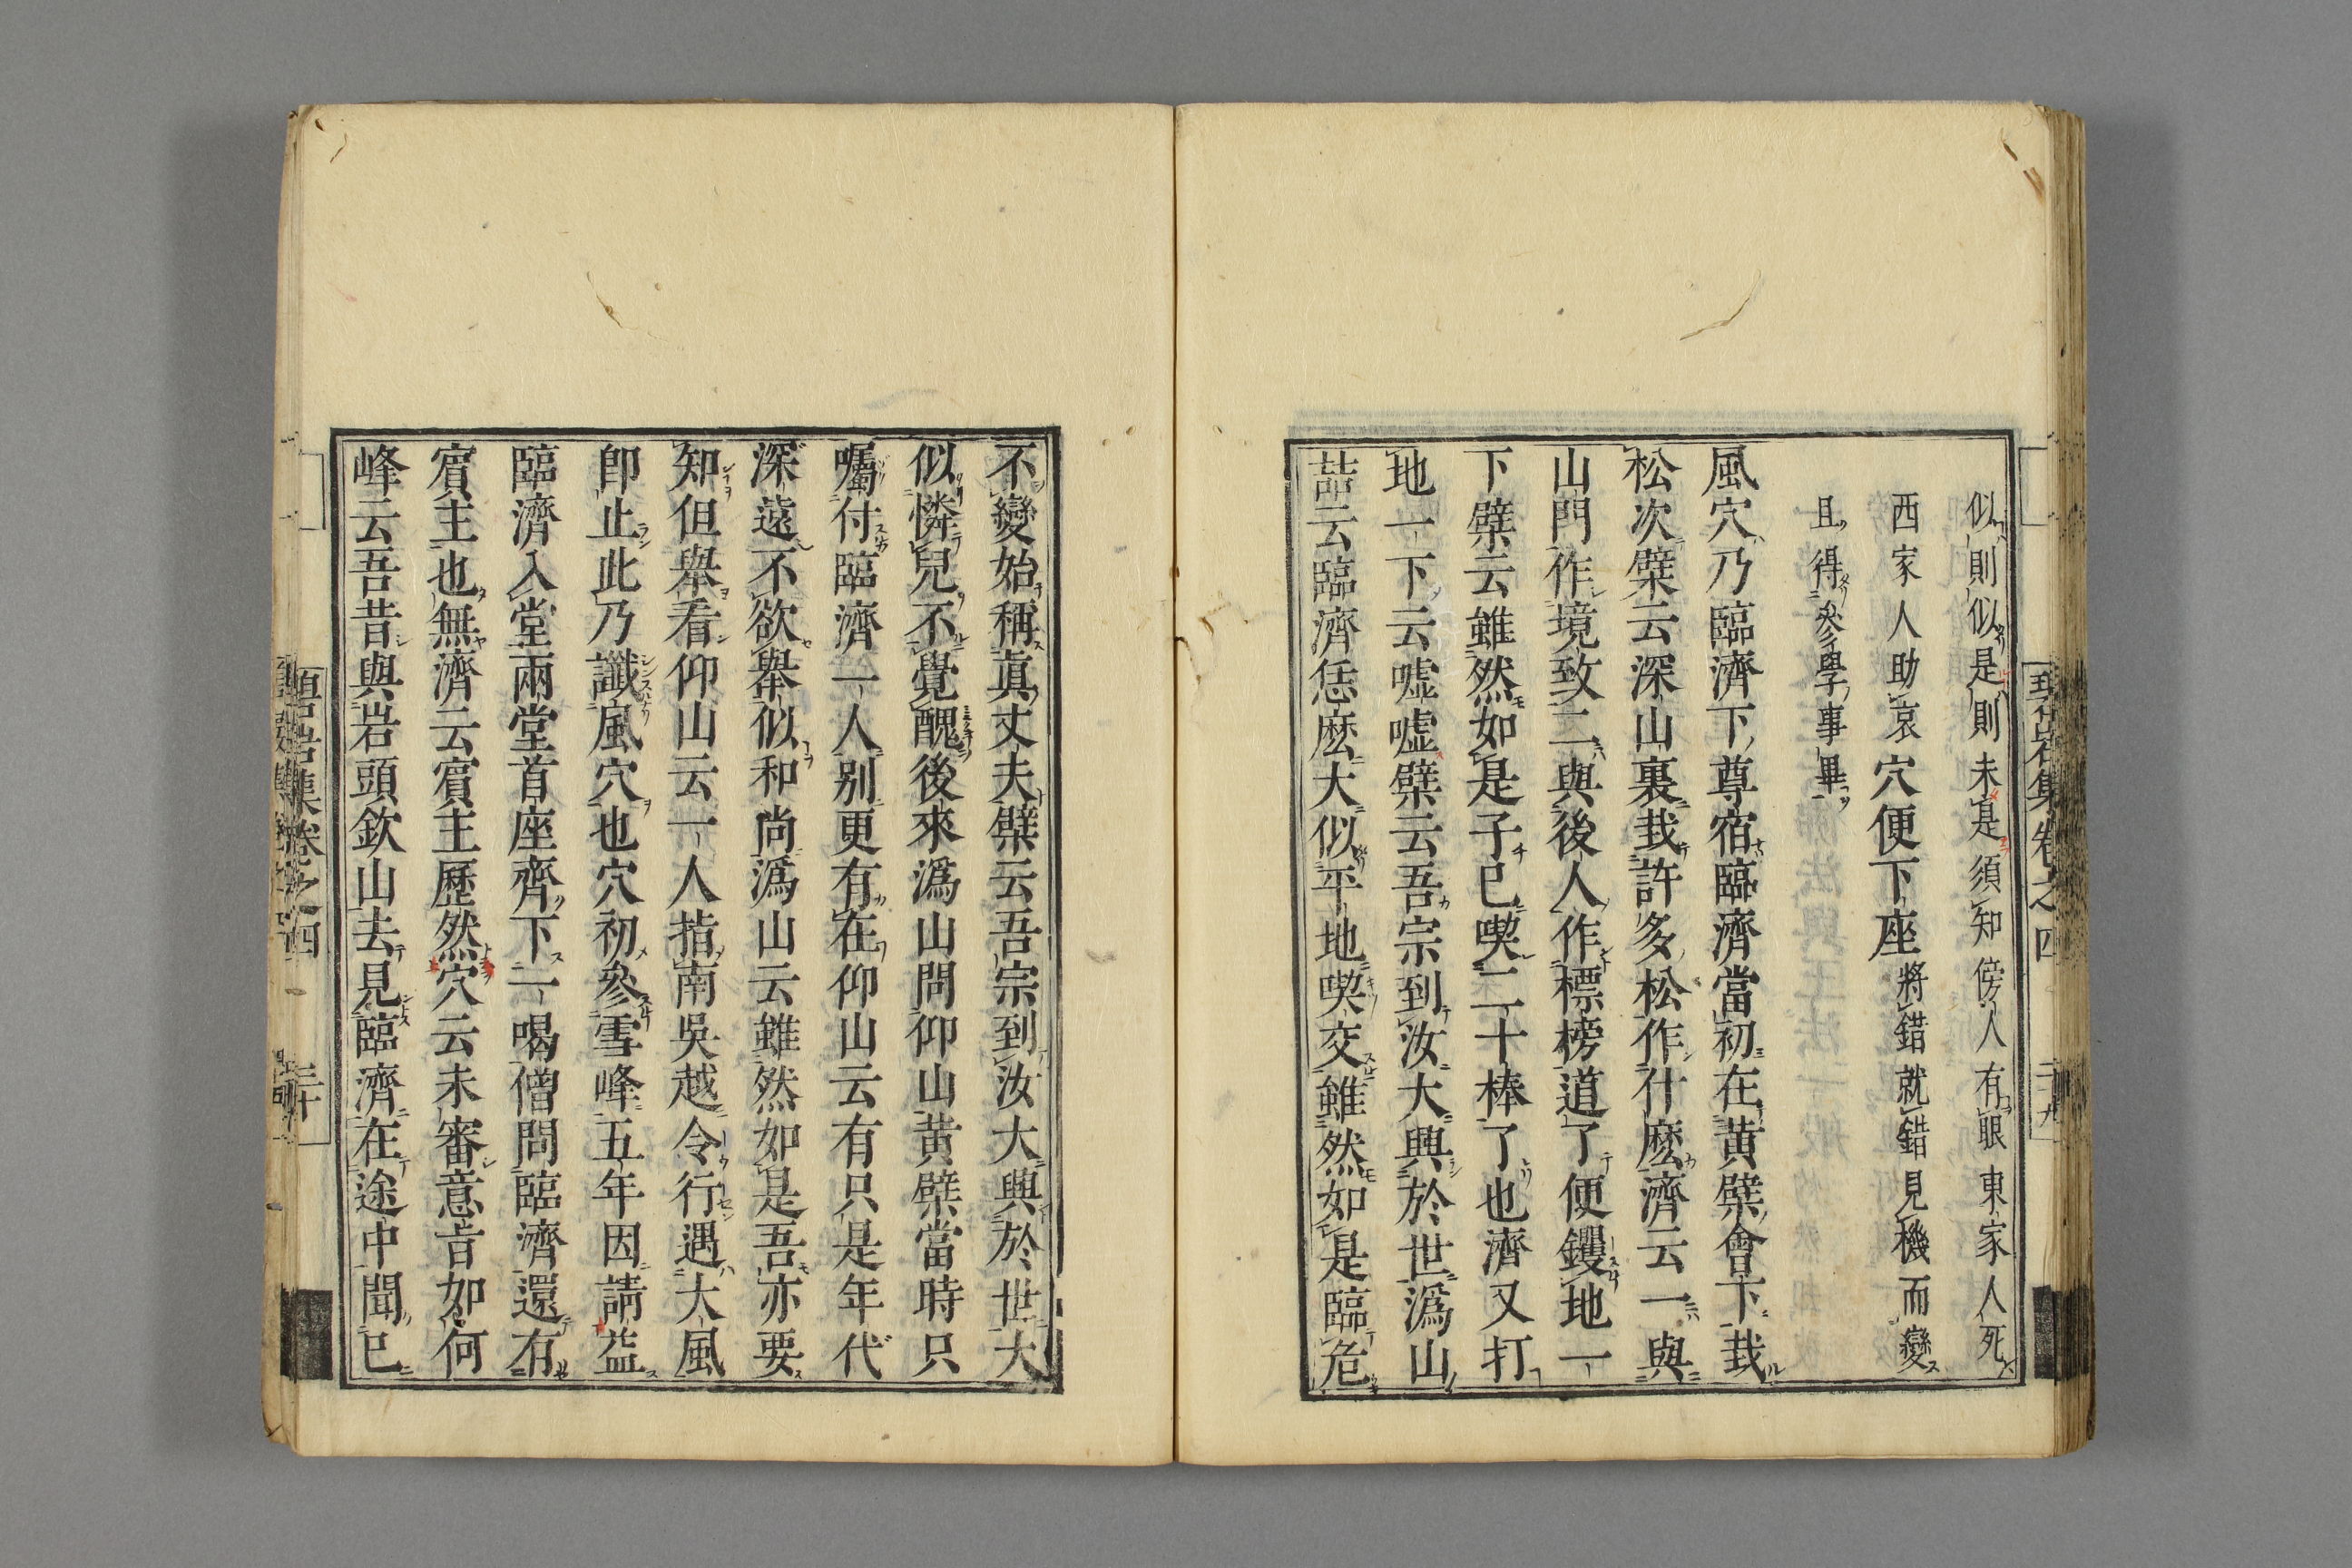 似則似是則未是須知傍人有眼東家人死
西家人助哀穴便下座將錯就錯見機而變
且得參學事畢
風穴乃臨濟下尊宿臨濟當初在黄檗會下栽
松次檗云深山裏栽許多松作什麼濟云一與
山門作境致二與後人作標榜道了便钁地一
下檗云雖然如是子已喫二十棒了也濟又打
地一下云嘘嘘檗云吾宗到汝大興於世溈山
喆云臨濟恁麼大似平地喫交雖然如是臨危
碧岩集卷之四 二十九
不變始稱真丈夫檗云吾宗到汝大興於世大
似憐兒不覺醜後來溈山問仰山黄檗當時只
囑付臨濟一人别更有在仰山云有只是年代
深遠不欲舉似和尚溈山云雖然如是吾亦要
知但舉看仰山云一人指南吳越令行遇大風
即止此乃讖風穴也穴初參雪峰五年因請益
臨濟入堂兩堂首座齊下一喝僧問臨濟還有
賓主也無濟云賓主歷然穴云未審意旨如何
峰云吾昔與岩頭欽山去見臨濟在途中聞已
碧岩集卷之四 三十